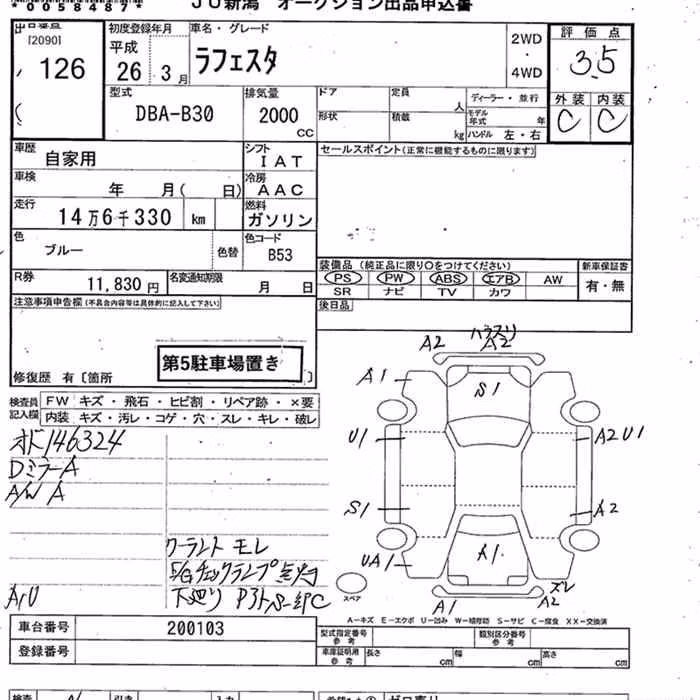 *0058487*
JU新潟 オークション出品申込書
出品番号
[2090]
126
初度登録年月
平成
26年3月
車名・グレード
ラフェスタ
2WD
・
4WD
評価点
3.5
外装 内装
C C
型式
DBA-B30
排気量
2000
CC
ドア
形状
定員
人
積載
kg
ディーラー・並行
モデル年式 年
ハンドル 左・右
車歴
自家用
シフト
IAT
セールスポイント(正常に機能するものに限ります)
車検
年 月( 日)
冷房
AAC
走行
14万6千330 km
燃料
ガソリン
色
ブルー
色替
色コード
B53
装備品(純正品に限り○をつけてください)
PS PW ABS エアB AW
SR ナビ TV カワ
新車保証書
有・無
R券
11,830円
名変通知期限
月 日
後日品
注意事項申告欄(不具合内容等は具体的に記入して下さい)
第5駐車場置き
修復歴 有〔箇所 〕
検査員記入欄
FW キズ・飛石・ヒビ割・リペア跡・×要
内装 キズ・汚レ・コゲ・穴・スレ・キレ・破レ
オド146324
DミラーA
A/W A
クーラント モレ
E/Gチェックランプ点灯
下廻り
A,U
A2
A2
A1
S1
U1
A2 U1
S1
A2
UA1
A1
A1
A2
ズレ
スペア
A-キズ E-エクボ U-凹み W-補修跡 S-サビ C-腐食 XX-交換済
車台番号
200103
登録番号
型式指定番号
参考
類別区分番号
参考
車庫証明用
参考
長さ cm
幅 cm
高さ cm